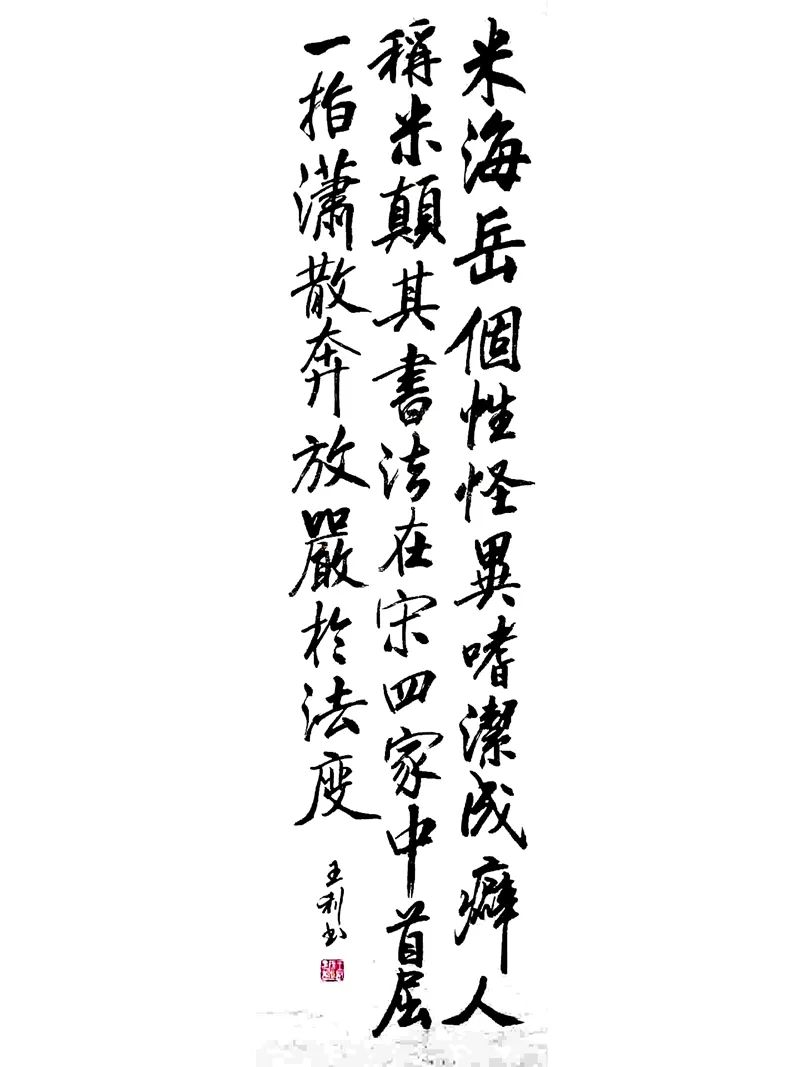 米海岳個性怪異嗜潔成癖人
稱米顛其書法在宋四家中首屈
一指瀟散奔放嚴於法度
王利書